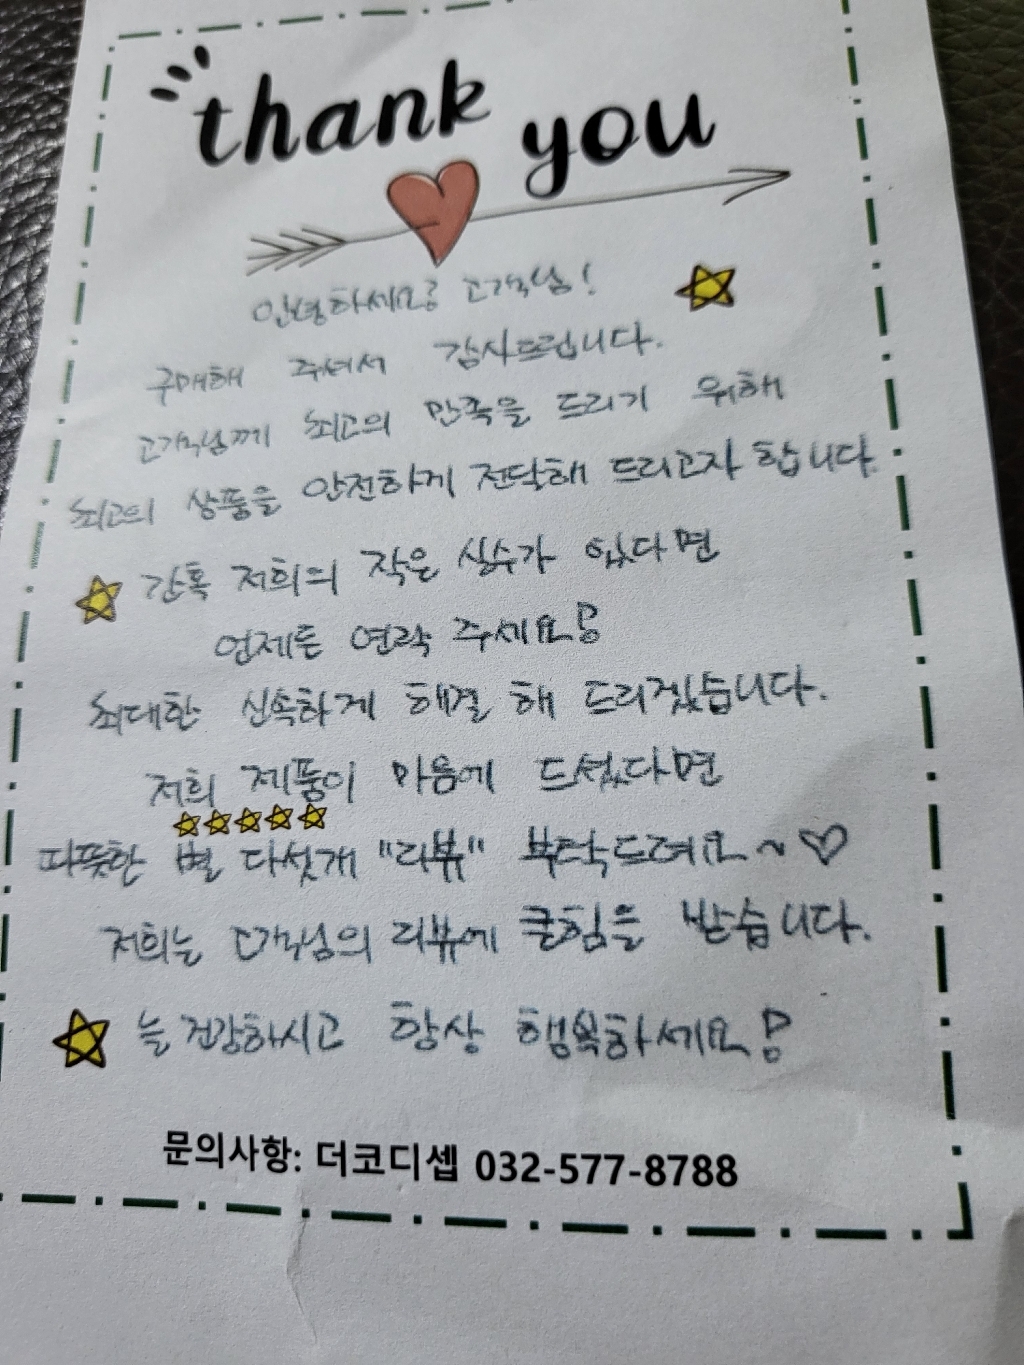 thank you
안녕하세요! 고객님!
구매해 주셔서 감사드립니다.
고객님께 최고의 만족을 드리기 위해
최고의 상품을 안전하게 전달해 드리고자 합니다.
간혹 저희의 작은 실수가 있다면
언제든 연락 주세요!
최대한 신속하게 해결 해 드리겠습니다.
저희 제품이 마음에 드셨다면
따뜻한 별 다섯개 "리뷰" 부탁드려요~♡
저희는 고객님의 리뷰에 큰힘을 받습니다.
늘 건강하시고 항상 행복하세요!
문의사항: 더코디셉 032-577-8788